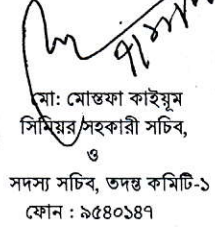 মো: মোস্তফা কাইয়ূম
সিনিয়র সহকারী সচিব,
ও
সদস্য সচিব, তদন্ত কমিটি-১
ফোন : ৯৫৪০১৪৭